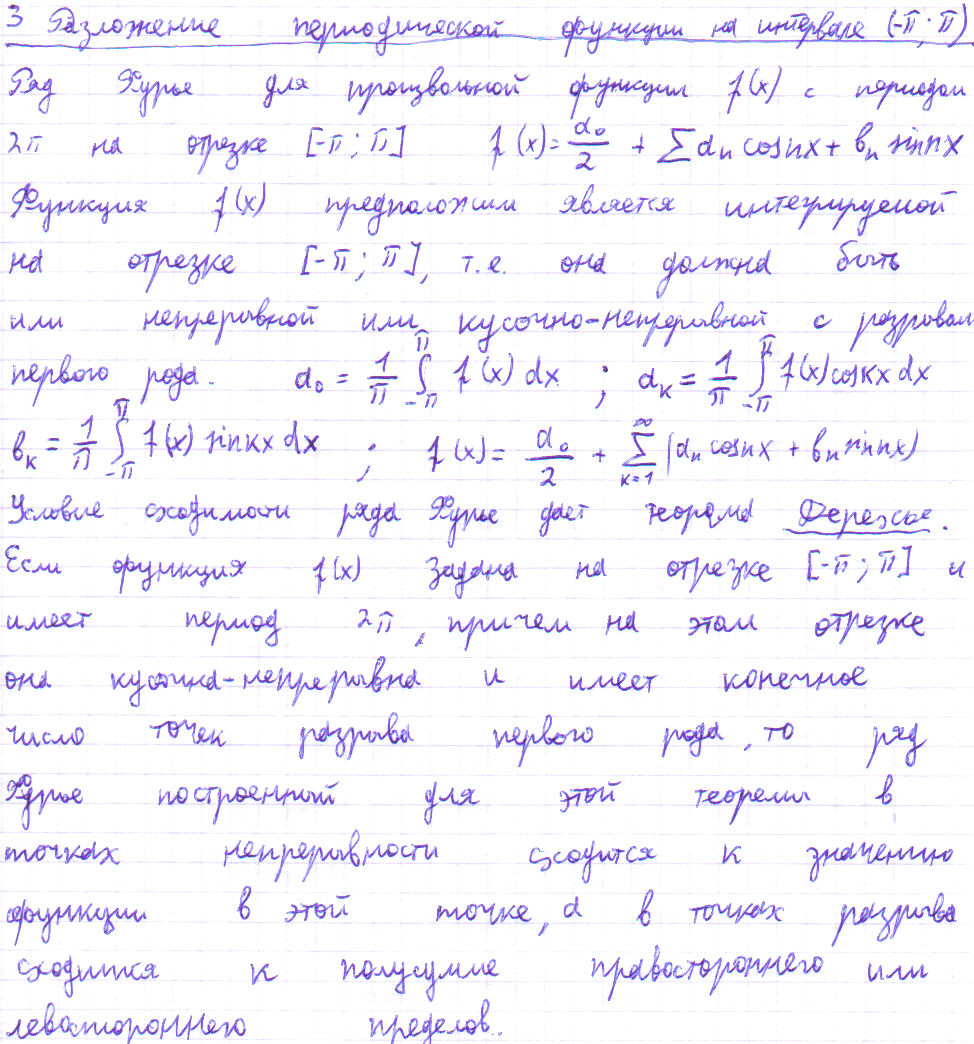 3 Разложение периодической функции на интервале (-π; π)
Ряд Фурье для произвольной функции f(x) с периодом
2π на отрезке [-π; π] f(x) = a₀/2 + ∑ aₙ cos nx + bₙ sin nx
Функция f(x) предположим является интегрируемой
на отрезке [-π; π], т.е. она должна быть
или непрерывной или кусочно-непрерывной с разрывом
первого рода. a₀ = 1/π ∫_{-π}^{π} f(x) dx ; aₖ = 1/π ∫_{-π}^{π} f(x) cos kx dx
bₖ = 1/π ∫_{-π}^{π} f(x) sin kx dx ; f(x) = a₀/2 + ∑_{k=1}^{∞} (aₙ cos nx + bₙ sin nx)
Условие сходимости ряда Фурье дает теорема Дерехле.
Если функция f(x) задана на отрезке [-π; π] и
имеет период 2π, причем на этом отрезке
она кусочна-непрерывна и имеет конечное
число точек разрыва первого рода, то ряд
Фурье построенный для этой теоремы в
точках непрерывности сходится к значению
функции в этой точке, а в точках разрыва
сходится к полусумме правостороннего или
левостороннего пределов.